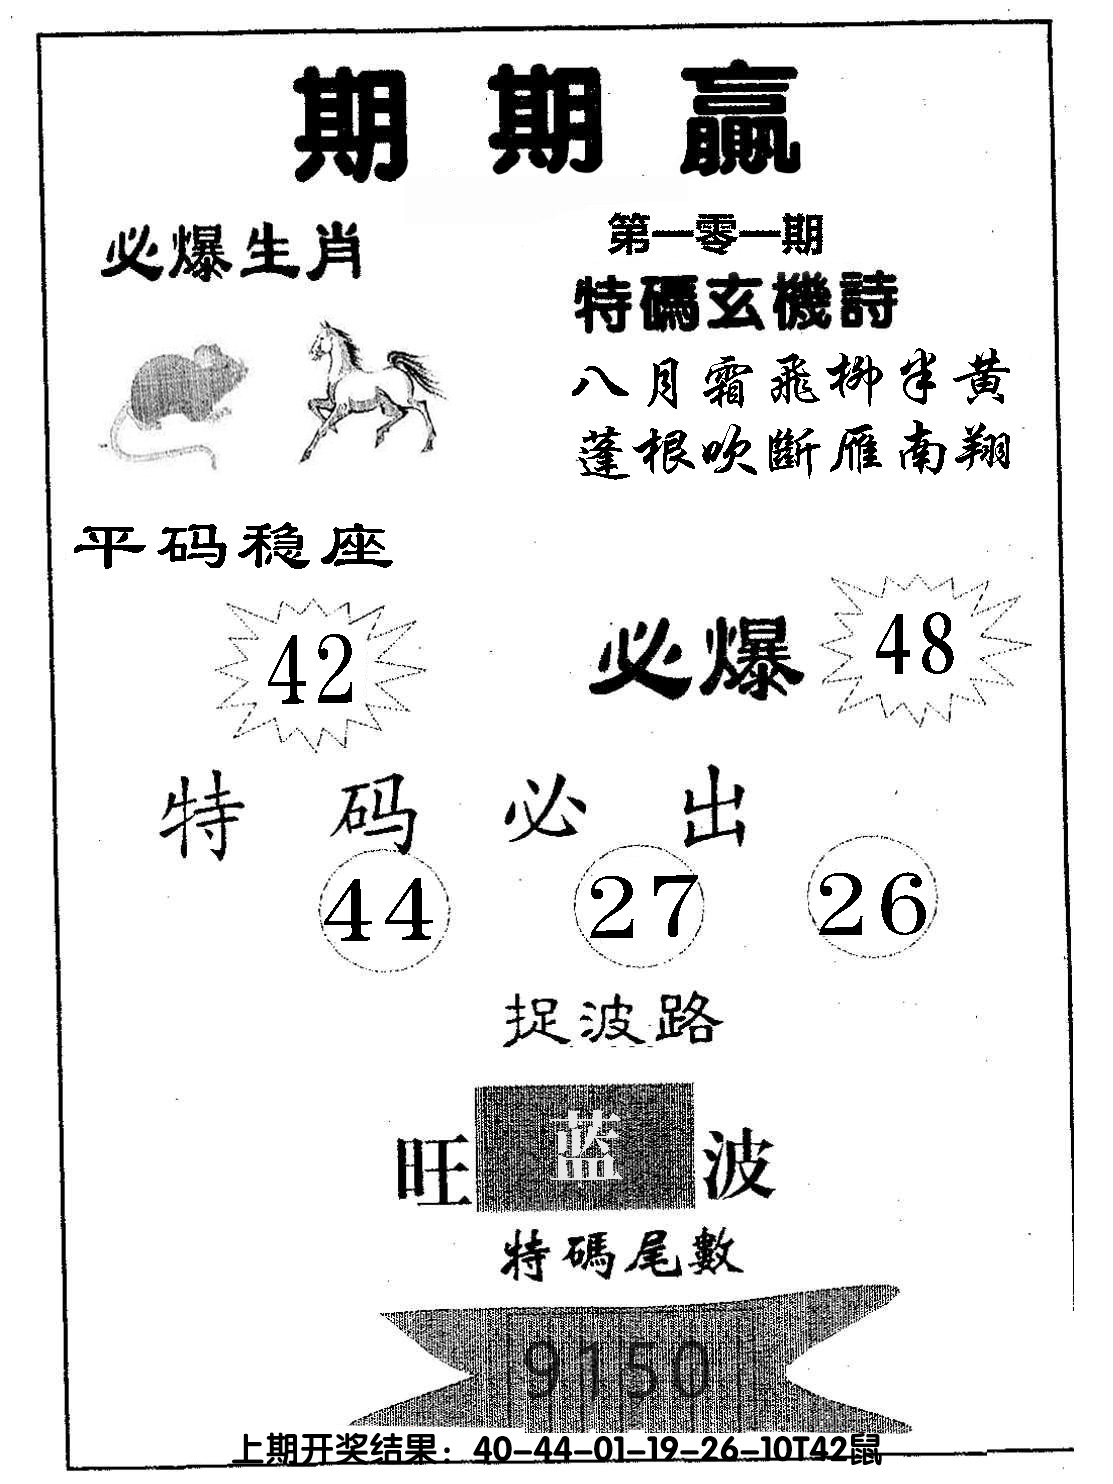 期期贏
必爆生肖
第一零一期
特碼玄機詩
八月霜飛柳半黄
蓬根吹斷雁南翔
平码稳座
42
必爆 48
特码必出
44 27 26
捉波路
旺 蓝 波
特碼尾數
9150
上期开奖结果：40-44-01-19-26-10T42鼠